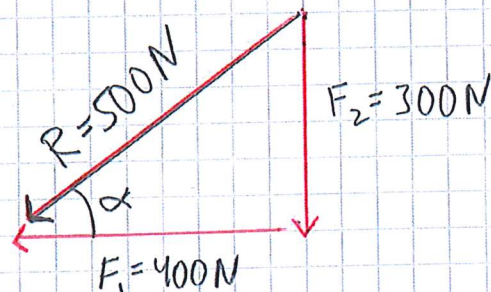 R=500N
F₂=300N
α
F₁=400N